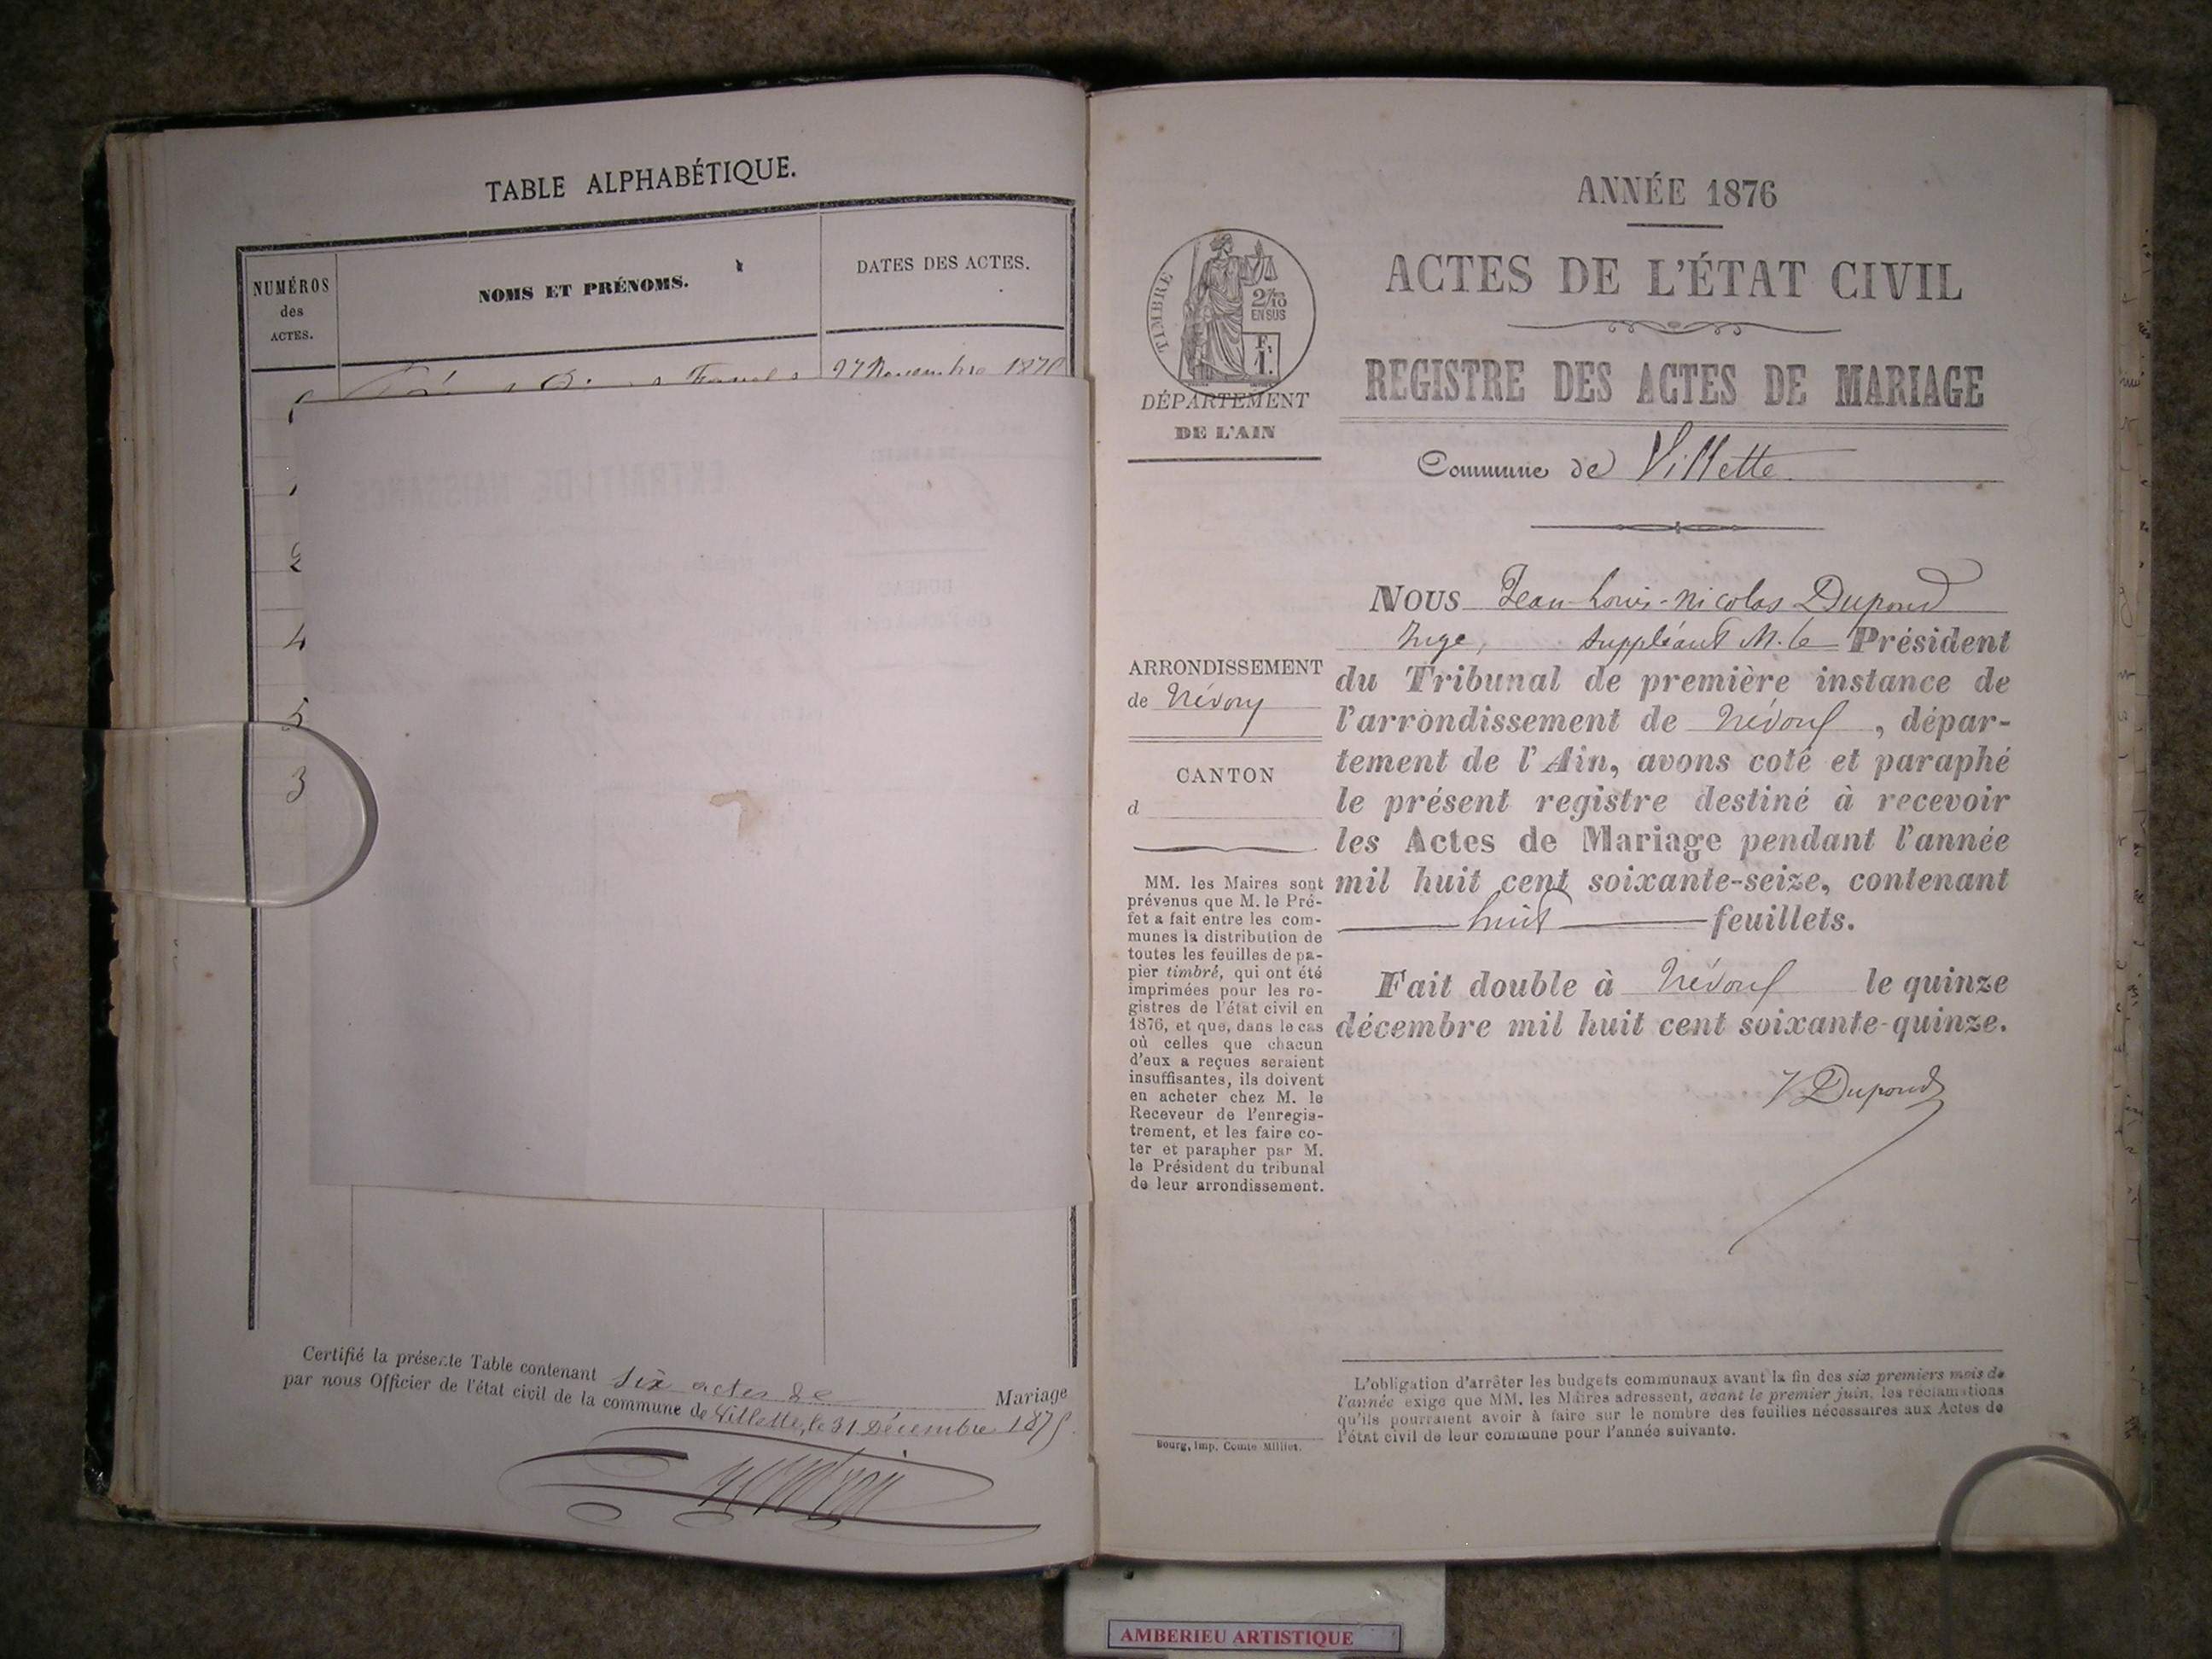 TABLE ALPHABÉTIQUE.
NUMÉROS
des
ACTES.
NOMS ET PRÉNOMS.
DATES DES ACTES.
27 Novembre 1875
1
2
4
5
3
Certifié la présente Table contenant six actes de Mariage
par nous Officier de l'état civil de la commune de Villette, le 31 Décembre 1875
ANNÉE 1876
ACTES DE L'ÉTAT CIVIL
REGISTRE DES ACTES DE MARIAGE
Commune de Villette
TIMBRE
2/10
EN SUS
F.
1.
DÉPARTEMENT
DE L'AIN
ARRONDISSEMENT
de Trévoux
CANTON
d
MM. les Maires sont
prévenus que M. le Pré-
fet a fait entre les com-
munes la distribution de
toutes les feuilles de pa-
pier timbré, qui ont été
imprimées pour les re-
gistres de l'état civil en
1876, et que, dans le cas
où celles que chacun
d'eux a reçues seraient
insuffisantes, ils doivent
en acheter chez M. le
Receveur de l'enregis-
trement, et les faire co-
ter et parapher par M.
le Président du tribunal
de leur arrondissement.
NOUS Jean-Louis-Nicolas Dupond
Juge, Suppléant M. le Président
du Tribunal de première instance de
l'arrondissement de Trévoux, dépar-
tement de l'Ain, avons coté et paraphé
le présent registre destiné à recevoir
les Actes de Mariage pendant l'année
mil huit cent soixante-seize, contenant
huit feuillets.
Fait double à Trévoux le quinze
décembre mil huit cent soixante-quinze.
Dupond
L'obligation d'arrêter les budgets communaux avant la fin des six premiers mois de
l'année exige que MM. les Maires adressent, avant le premier juin, les réclamations
qu'ils pourraient avoir à faire sur le nombre des feuilles nécessaires aux Actes de
l'état civil de leur commune pour l'année suivante.
Bourg, Imp. Comte-Milliet.
AMBERIEU ARTISTIQUE